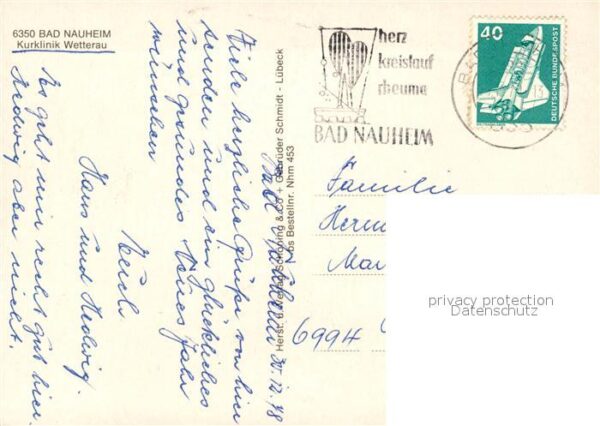 6350 BAD NAUHEIM
Kurklinik Wetterau
Bad Nauheim 30.12.78
Viele herzliche Grüße von hier
senden und ein glückliches
und gesundes Neues Jahr
wünschen
Euch
Hans und Hedwig.
Es geht mir recht gut hier.
Hedwig aber nicht.
Herst. u. Verlag Schöning & Co + Gebrüder Schmidt - Lübeck
Bestellnr. Nhm 453
herz
kreislauf
rheuma
BAD NAUHEIM
40
DEUTSCHE BUNDESPOST
Familie
Herm
Mar
6994
privacy protection
Datenschutz